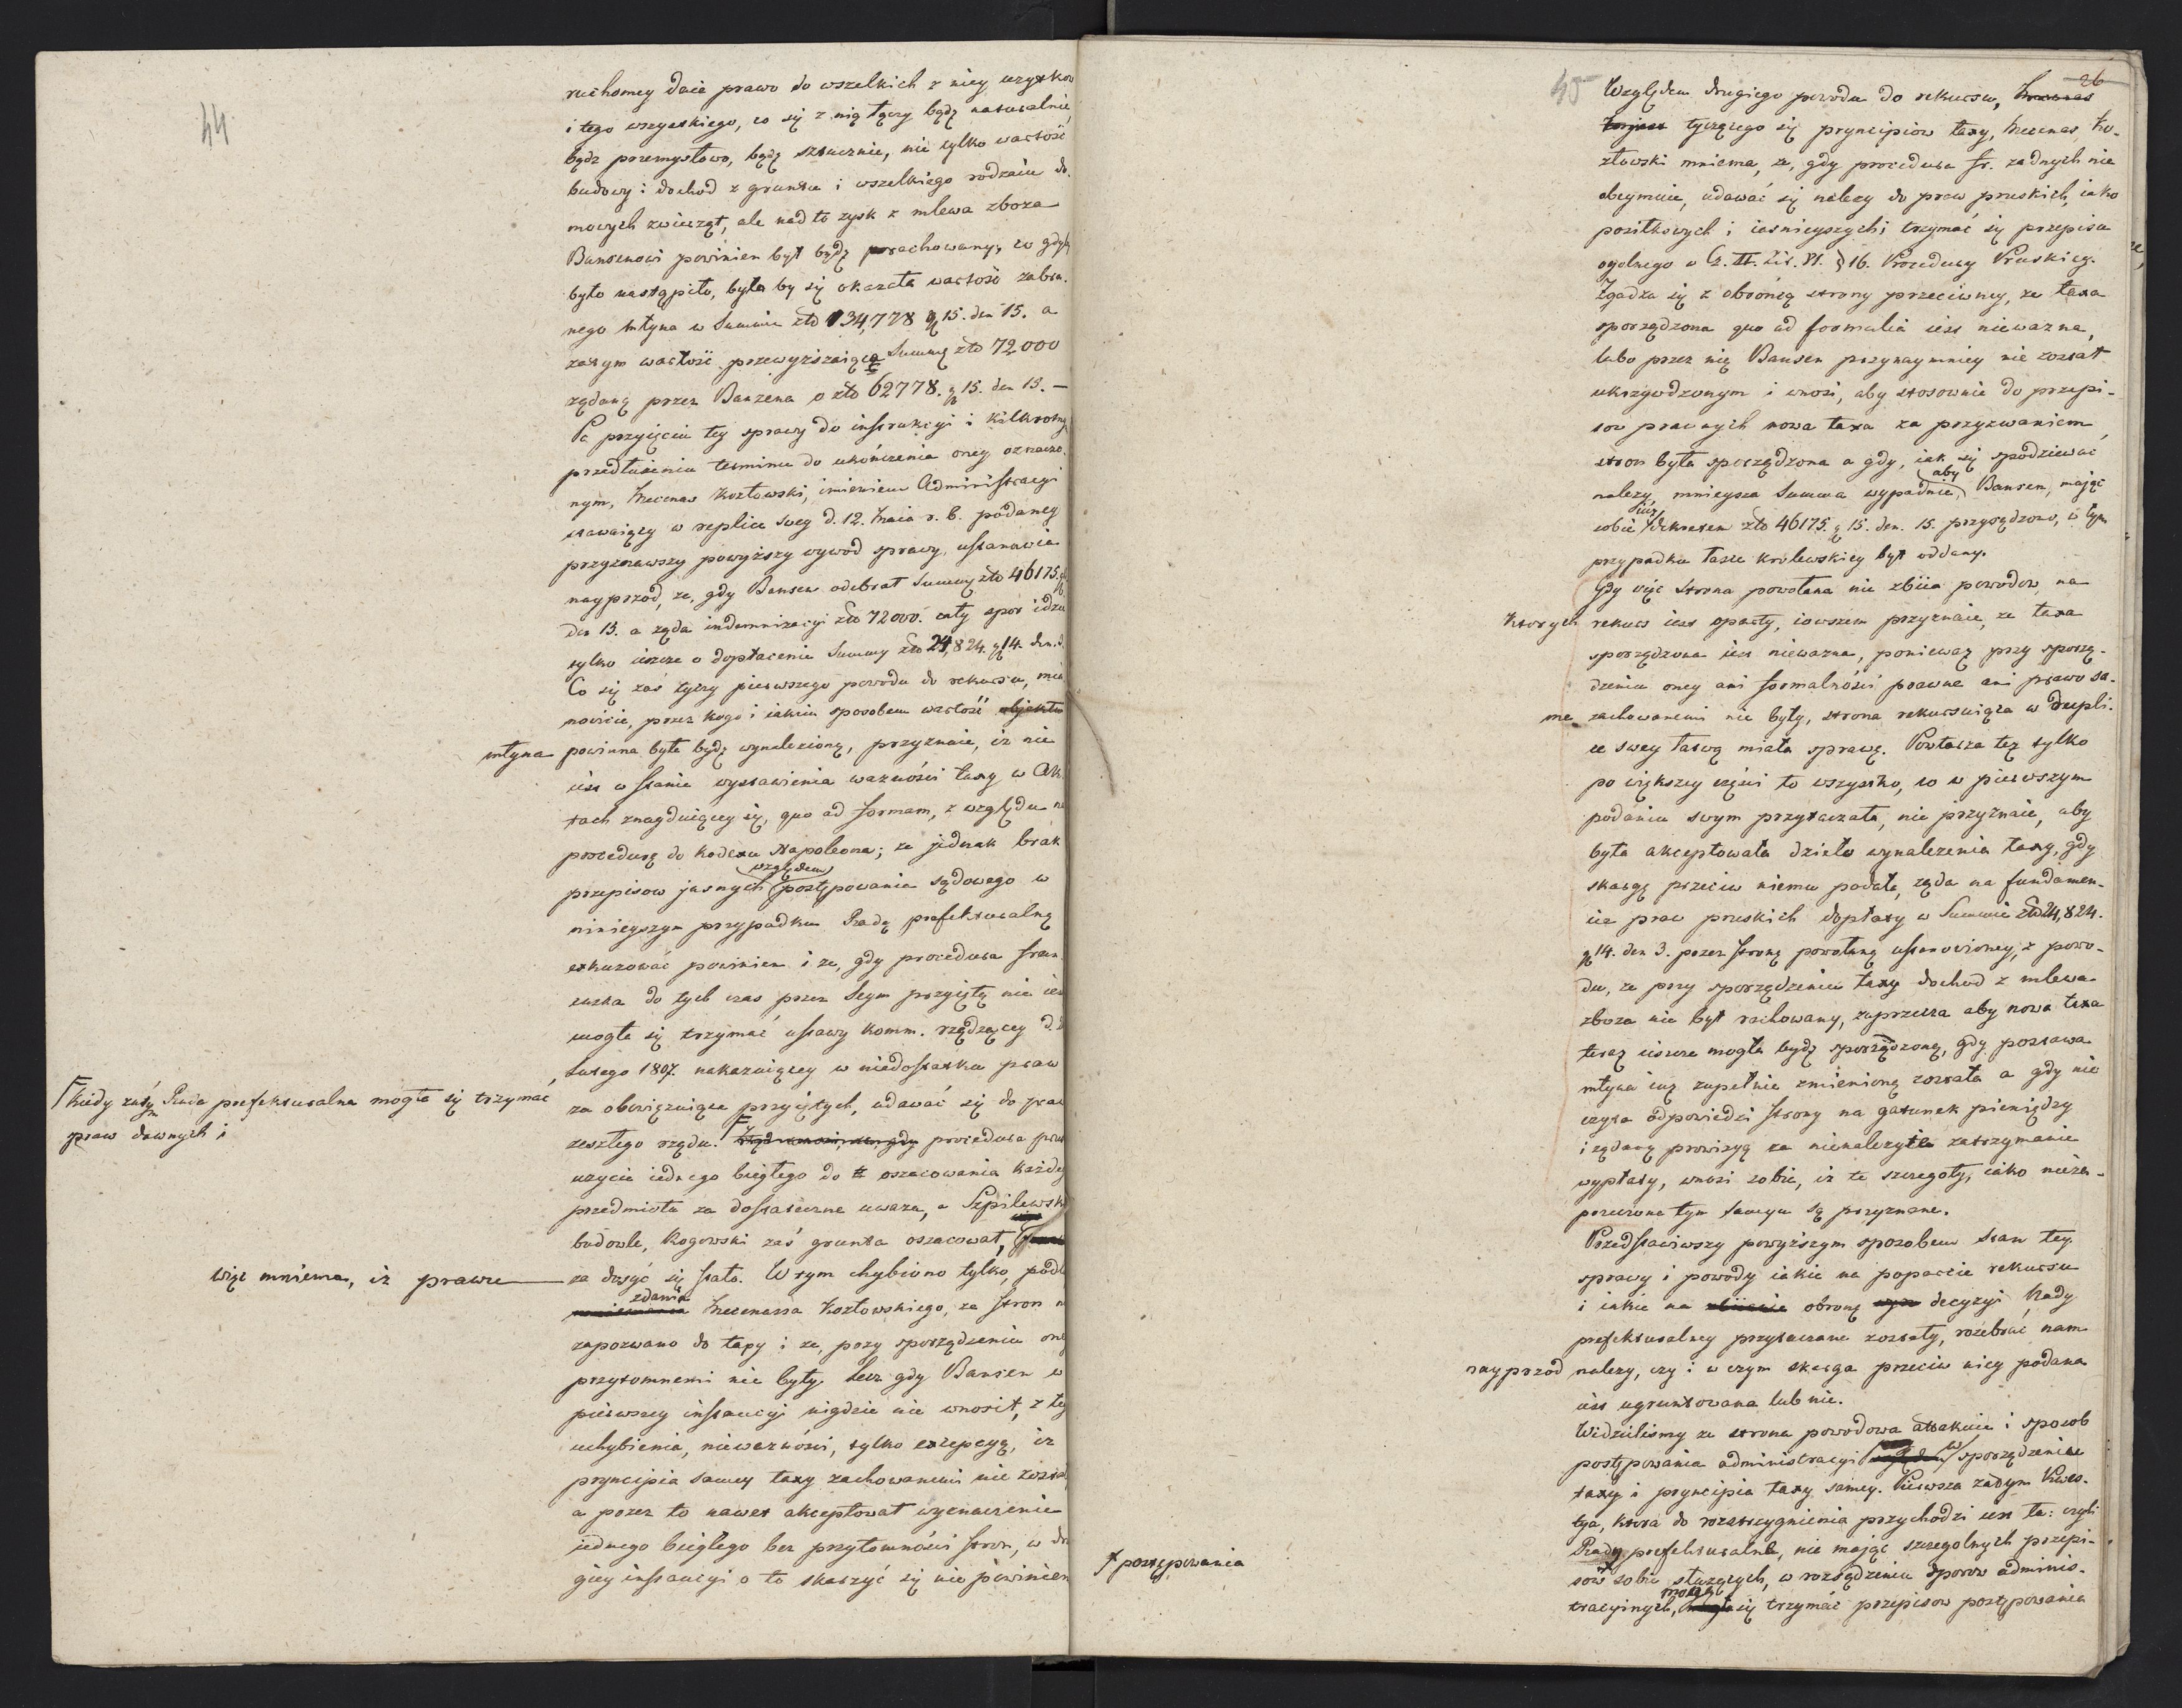 44
ruchomey daie prawo do wszelkich z niey uzytkow
i tego wszystkiego, co się z nią łączy bądź naturalnie,
bądz przemysłowo, bądź sztucznie, nie tylko wartość
budowy i dochod z gruntu i wszelkiego rodzaiu do-
mowych zwierząt, ale nad to zysk z mlewa zboza
Bansenowi powinien był bydź porachowany, co gdyby
było nastąpiło, była by się okazała wartość zabra-
nego młyna w Summie złł 134,778 gr 15. den 15. a
zatym wartość przewyższaiąca Summę złł 72000
rządaną przez Banzena o złł 62778. gr 15. den 15. —
Po przyięciu tey sprawy do instrukcyi i kilkrotnym
przedłużeniu terminu do ukończenia oney oznaczo-
nym, Mecenas Kozłowski, imieniem Administracyi
stawaiący w replice swey d. 12. Maia r. b. podaney
przyznawszy powyższy wywod sprawy, ustanawia
nayprzod, ze, gdy Bansen odebrał Summę złł 46175 gr
den 15. a ząda indemnizacyi złł 72000. cały spor idzie
tylko ieszcze o dopłacenie Summy złł 24,824. gr 14. den. 3.
Co się zaś tyczy pierwszego powodu do rekursu, mia-
nowicie, przez kogo i iakim sposobem wartość objektu
młyna powinna była bydź wynalezioną, przyznaie, iz nie
iest w stanie wystawienia wazności taxy w Ak-
tach znayduiącey się, quo ad formam, z względu na
procedurę do Kodexu Napoleona; ze jednak brak
względem
przepisow jasnych postępowania sądowego w
ninieyszym przypadku Radę prefekturalną
exkuzować powinien i ze, gdy procedura fran-
cuzka do tych czas przez Seym przyiętą nie iest
mogła się trzymać ustawy Komm. rządzącey d.
Lutego 1807. nakazuiącey w niedostatku praw
Kiedy zatym Rada prefekturalna mogła się trzymać
praw dawnych i
za obowięzuiące przyiętych, udawać się do praw
zeszłego rządu. procedura prus
uzycie iednego biegłego do oszacowania każdego
przedmiotu za dostateczne uważa, a Szpilewski
budowle, Rogowski zaś grunta oszacował,
więc mniema, iz prawu
za dosyć się stało. W tym chybiono tylko, podł
zdania
Mecenassa Kozłowskiego, ze stron n
zapozwano do taxy i ze, przy sporządzeniu oney
przytomnemi nie były. Lecz gdy Bansen w
pierwszey instancyi nigdzie nie wnosił, z tego
uchybienia, niewazności, tylko excepcyą, iz
pryncipia samey taxy zachowanemi nie zostały
a przez to nawet akceptował wyznaczenie
iednego biegłego bez przytomności stron, w dru
giey instancyi o to skarzyć się nie powinien
45
26
Względem drugiego powodu do rekursu, Mecenas
tyczącego się pryncipiow taxy, Mecenas Ko-
złowski mniema, ze, gdy procedura fr. zadnych nie
obeymuie, udawać się nalezy do praw pruskich, iako
positkowych i iasnieyszych i trzymać się przepisu
ogolnego w Cz. II. Tit. VI. § 16. Procedury Pruskiey.
Zgadza się z obroną strony przeciwney, ze taxa
sporządzona quo ad formalia iest niewazna,
lubo przez nię Bansen przynaymniey nie został
ukrzywdzonym i wnosi, aby stosownie do przepi-
sow prawnych nowa taxa za przyzwaniem
stron była sporządzona a gdy, iak się spodziewać
aby
nalezy, mnieysza Summa wypadnie, Bansen, mając
iuz
sobie dekretem złł 46175. gr 15. den. 15. przysądzone, w tym
przypadku łasce królewskiey był oddany.
Gdy więc strona powołana nie zbiia powodow, na
ktorych rekurs iest oparty, iowszem przyznaie, ze taxa
sporządzona iest niewazna, ponieważ przy sporzą-
dzeniu oney ani formalności prawne ani prawo sa-
me zachowanemi nie były, strona rekursuiąca w Dupli-
ce swey łatwą miała sprawę. Powtarza też tylko
po większey części to wszystko, co w pierwszym
podaniu swym przytaczała, nie przyznaie, aby
była akceptowała dzieło wynalezienia taxy, gdy
skargę przeciw niemu podała, ząda na fundamen-
cie praw pruskich dopłaty w Summie złł 24,824.
gr 14. den 3. przez stronę powołaną ustanowioney, z powo-
du, ze przy sporządzeniu taxy dochod z mlewa
zboza nie był rachowany, zaprzecza aby nowa taxa
teraz ieszcze mogła bydź sporządzoną, gdy postawa
młyna iuz zupełnie zmienioną została a gdy nie
czyta odpowiedzi strony na gatunek pieniędzy
i ządaną prowizyą za nienalezyte zatrzymanie
wypłaty, wnosi sobie, iz te szczegoły, iako nieza-
przeczone tym samym są przyznane.
Przedstawiwszy powyższym sposobem stan tey
sprawy i powody iakie na poparcie rekursu
i iakie na obronę decyzyi Rady
prefekturalney przytaczane zostały, rozebrać nam
nayprzod nalezy, czy i w czym skarga przeciw niey podana
iest ugruntowana lub nie.
Widzieliśmy ze strona powodowa attakuie i sposob
w
postępowania administracyi sporządzeniu
taxy i pryncipia taxy samey. Pierwsza zatym Kwes-
tya, ktora do rozstrzygnienia przychodzi iest ta: czyli
Rady prefekturalne, nie mając szczegolnych przepi-
† postępowania
sow sobie słuzących, w rozsądzeniu sporow adminis-
mogą
tracyinych, się trzymać przepisow postępowania